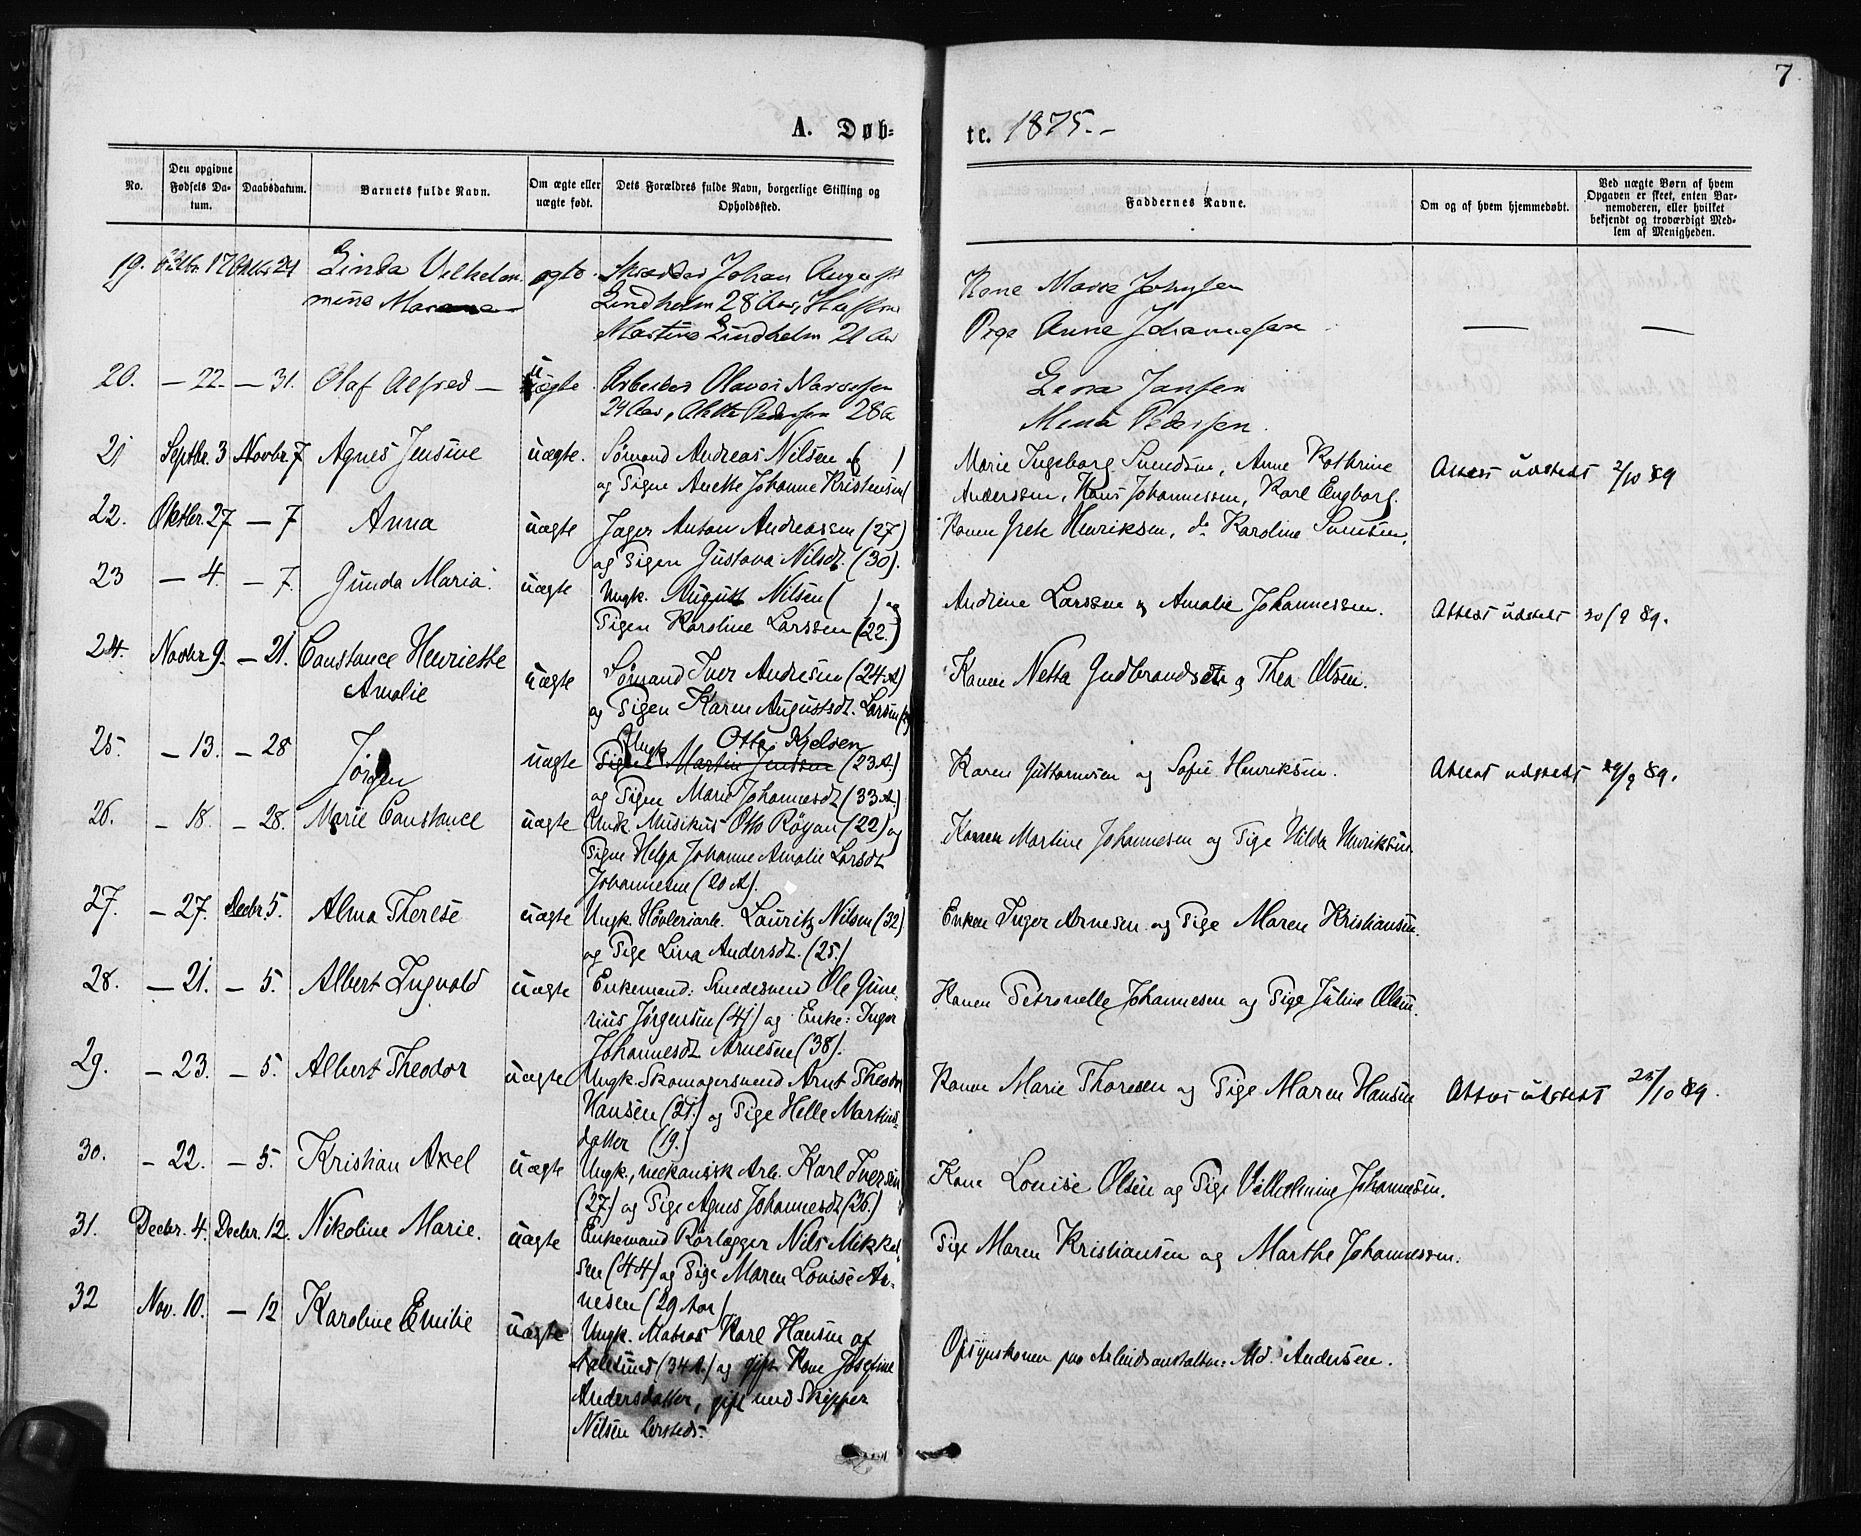 7.
A. Døb- te. 1875.-
No.
Den opgivne Fødsels Da-tum.
Daabsdatum.
Barnets fulde Navn.
Om ægte eller uægte født.
Dets Forældres fulde Navn, borgerlige Stilling og Opholdssted.
Faddernes Navne.
Om og af hvem hjemmedøbt.
Ved uægte Børn af hvem Opgaven er skeet, enten Bar-nemoderen, eller hvilket bekjendt og troværdigt Med-lem af Menigheden.
19. 17 24 Linda Vilhelm-
mine
Johan August
Lindholm 28 Aar,
Martine Lindholm 21 Aar
Kone Marie
Pige Anne Johannessen
— —
20. — 22. — 31. Olaf Alfred — uægte
Arbeider
29 Aar, Pedersen 28 a
Lena Jansen
Mina Pedersen.
21 Septbr. 3 Novbr. 7 Agnes Jensine uægte.
Sømand Andreas Nilsen ( )
og Pigen Anette Johanne Kristensen (
Marie Ingeborg Svendsen, Anne Kathrine
Anderssen, Hans Johannessen, Karl Engborg.
Attest udstedt 2/10 89
22. Oktbr. 27 — 7 Anna uægte
Jager Anton Andreassen (27)
og Pigen Gustava Nilsdt. (30).
Konen Grete Henriksen, do Karoline
23 — 4. — 7. Gunda Maria. uægte
Ungk. August Nilsen ( ) og
Pigen Karoline Larssen (22.)
Andrine Larssen og Amalie Johannessen.
Attest udstedt 30/9 89.
24. Novbr 9. — 21. Constance Henriette
Amalie
uægte
Sømand Iver Andresen (24 A)
og Pigen Karen Augustsdt. Larsen
Konen Netta Gudbrandsen og Thea Olsen.
25. — 13. — 28 Jørgen uægte
Ungk Otto Kjelsen
Martin Jenssen (23 A.)
og Pigen Marie Johannesdt (33 A.)
Karen Guttormsen og Sofie Henriksen.
Attest udstedt 29/9 89.
26. — 18. — 28. Marie Constance uægte
Ungk. Musikus Otto Røyan (22) og
Pigen Helga Johanne Amalie Larsdt
Johannesen (20 A).
Konen Martine Johannesen og Pige Hilda Henriksen.
27. — 27. Decbr 5. Alma Therese uægte
Ungk. Høvleriarb. Lauritz Nilsen (32)
og Pige Lina Andersdt. (25.)
Enken Inger Arnesen og Pige Maren Kristiansen.
28. — 21. — 5. Albert Ingvald uægte
Enkemand: Smedesvend Ole Gune-
rius Jørgensen (41) og Enke: Inger
Johannesdt Arnesen (38).
Konen Petronelle Johannesen og Pige Juline Olsen.
29. — 23. — 5. Albert Theodor uægte
Ungk. Skomagersvend Arnt Theodor
Hansen (21.) og Pige Helle Martins-
datter (19.)
Konen Marie Thoresen og Pige Maren Hansen
Attest udstedt 25/10 89.
30. — 22. — 5. Kristian Axel uægte
Ungk., mekanisk Arb. Karl Iversen
(27) og Pige Agnes Johannesdt (26.)
Kone Louise Olsen og Pige Vilhelmine Johannesen.
31. Decbr. 4. Decbr. 12. Nikoline Marie. uægte
Enkemand Rørlægger Nils Mikkel-
sen (44) og Pige Maren Louise Ar-
nesen (29 Aar)
Pige Maren Kristiansen og Marthe Johannessen.
32 Nov. 10. — 12 Karoline Emilie uægte
Ungk. Matros Karl Hansen af
Aalesund (34 A.) og gift Kone Josefine
Andersdatter, gift med Skipper
Nilsen
Opsynskonen paa Arbeidsanstalten: Md. Andersen.